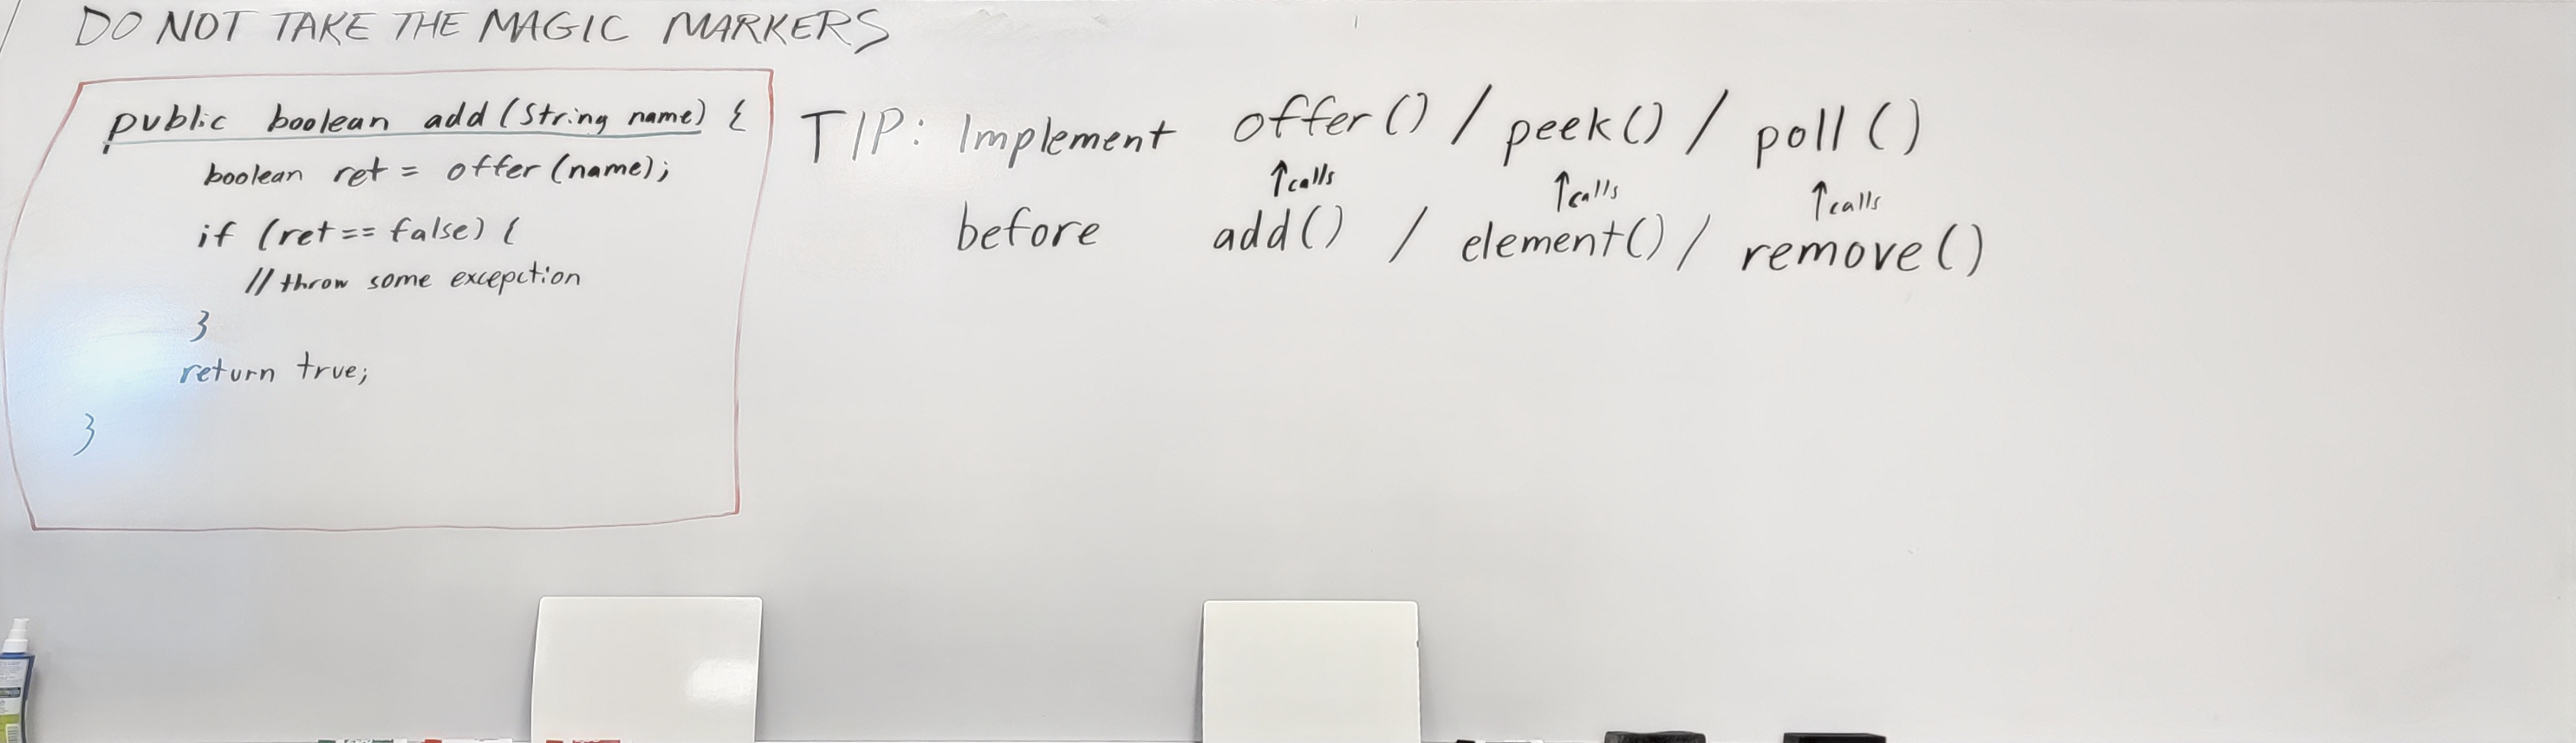 DO NOT TAKE THE MAGIC MARKERS
public boolean add (String name) {
boolean ret = offer (name);
if (ret == false) {
// throw some excepction
}
return true;
}
TIP: Implement offer () / peek () / poll ()
↑ calls ↑ calls ↑ calls
before add () / element () / remove ()